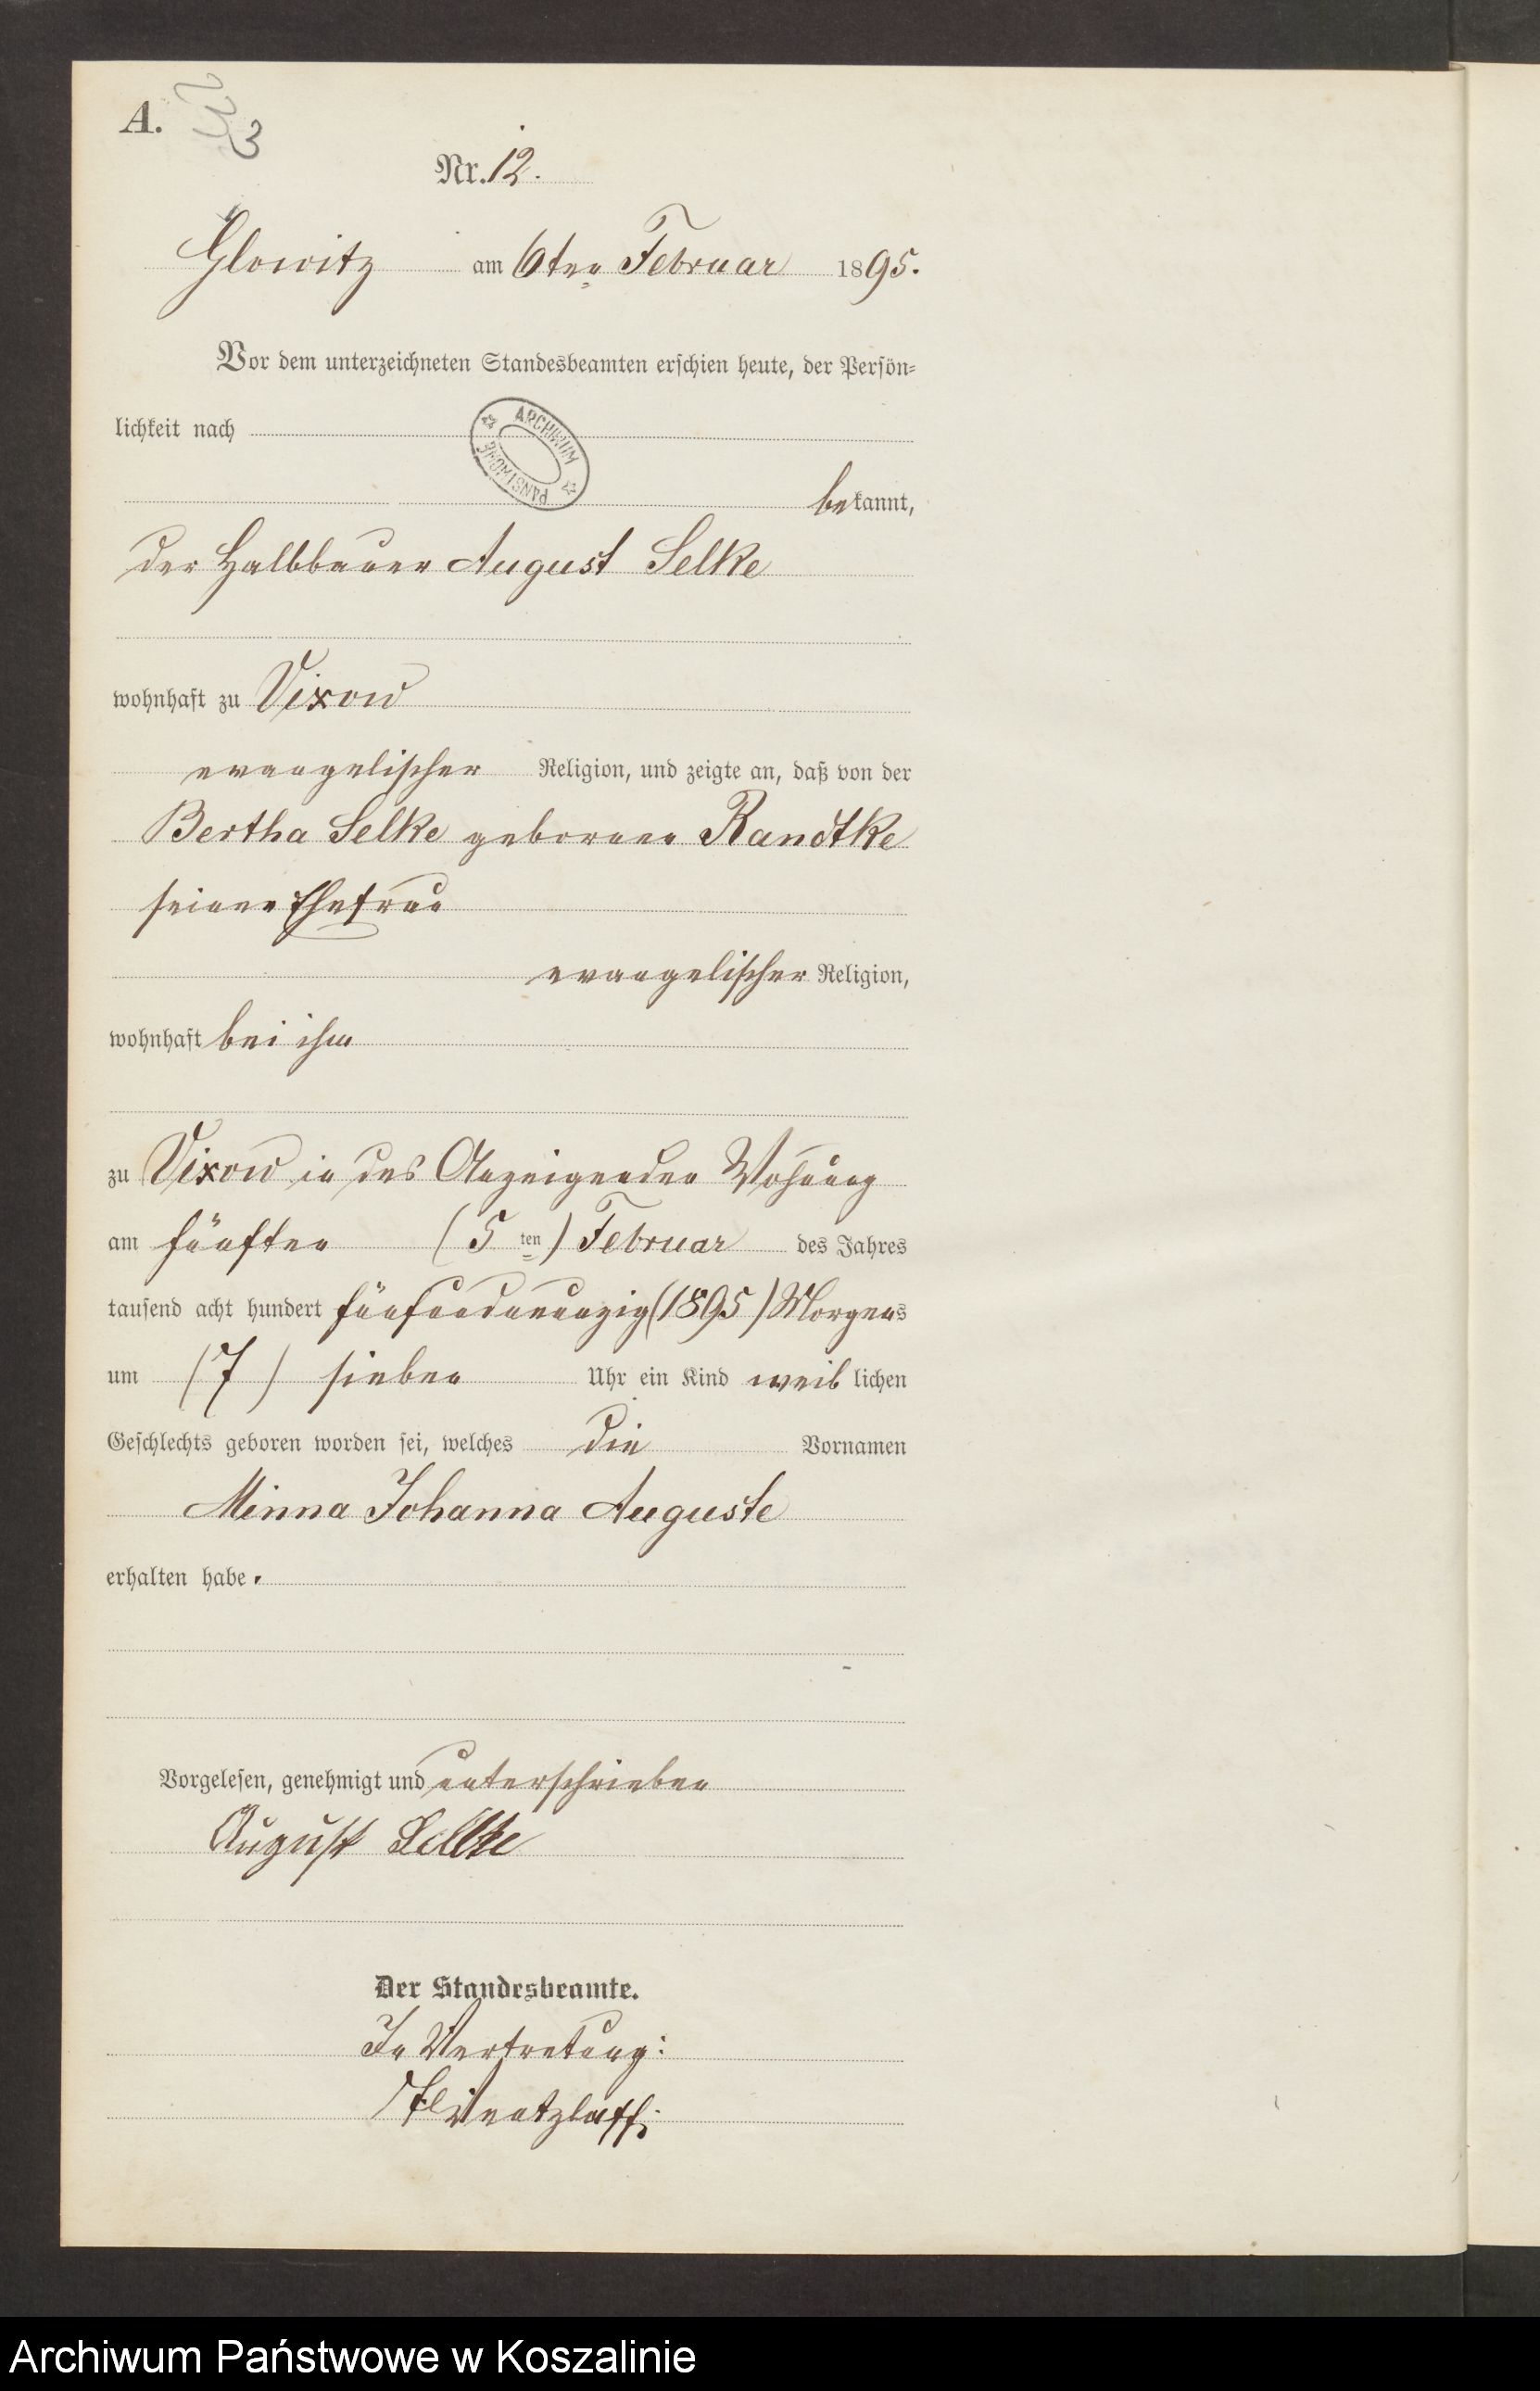 A.
Nr. 12.
Glowitz am 6ten Februar 1895.
Vor dem unterzeichneten Standesbeamten erschien heute, der Persön-
lichkeit nach
ARCHIWUM PAŃSTWOWE
bekannt,
der Halbbauer August Selke
wohnhaft zu Vixow
evangelischer Religion, und zeigte an, daß von der
Bertha Selke geborenen Randtke
seiner Ehefrau
evangelischer Religion,
wohnhaft bei ihm
zu Vixow in des Anzeigenden Wohnung
am fünften (5ten) Februar des Jahres
tausend acht hundert fünfundneunzig (1895) Morgens
um (7) sieben Uhr ein Kind weiblichen
Geschlechts geboren worden sei, welches die Vornamen
Minna Johanna Auguste
erhalten habe.
Vorgelesen, genehmigt und unterschrieben
August Sellke
Der Standesbeamte.
In Vertretung:
Archiwum Państwowe w Koszalinie